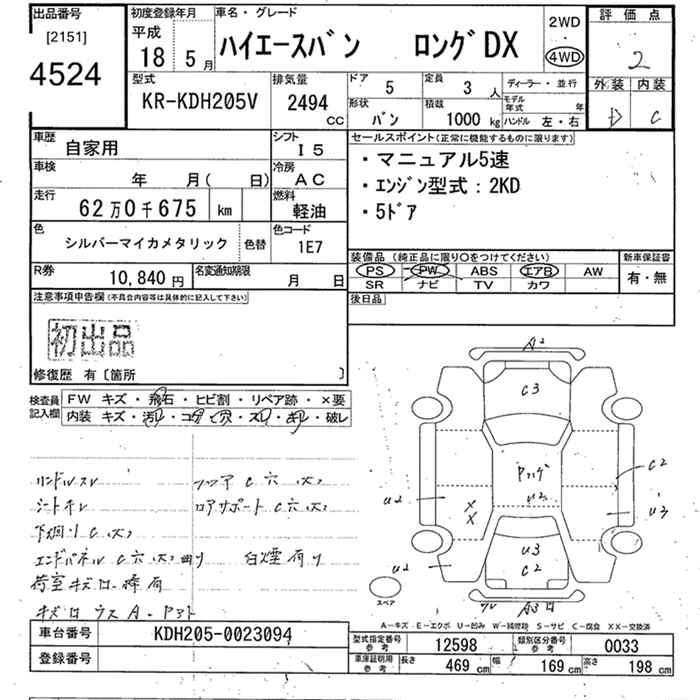 出品番号
[2151]
4524
初度登録年月
平成
18 5月
車名・グレード
ハイエースバン ロングDX
2WD
4WD
評価点
2
外装 内装
D C
型式
KR-KDH205V
排気量
2494 CC
ドア 5
定員 3 人
形状 バン
積載 1000 kg
ディーラー・並行
モデル年式 年
ハンドル 左・右
車歴 自家用
シフト I5
車検 年 月( 日)
冷房 AC
走行 62万0千675 km
燃料 軽油
色 シルバーマイカメタリック 色替
色コード 1E7
R券 10,840円
名変通知期限 月 日
セールスポイント(正常に機能するものに限ります)
・マニュアル5速
・エンジン型式:2KD
・5ドア
装備品 (純正品に限り○をつけてください)
PS PW ABS エアB AW
SR ナビ TV カワ
新車保証書
有・無
後日品
注意事項申告欄(不具合内容等は具体的に記入して下さい)
初出品
修復歴 有〔箇所 〕
検査員記入欄
FW キズ・飛石・ヒビ割・リペア跡・×要
内装 キズ・汚れ・コゲ・穴・スレ・キレ・破レ
ハンドルスレ フロア C 穴(大)
シートキレ ロアサポート C 穴(大)
下廻り C(大)
エンドパネル C 穴(大) 曲り 白煙有り
荷室キズ 有
A2
C3
U2
C2
U2
XX
U3
U3
C2
U2
U3
スペア
A-キズ E-エクボ U-凹み W-補修跡 S-サビ C-腐食 XX-交換済
車台番号 KDH205-0023094
登録番号
型式指定番号 参考 12598
類別区分番号 参考 0033
車庫証明用 参考 長さ 469 cm 幅 169 cm 高さ 198 cm